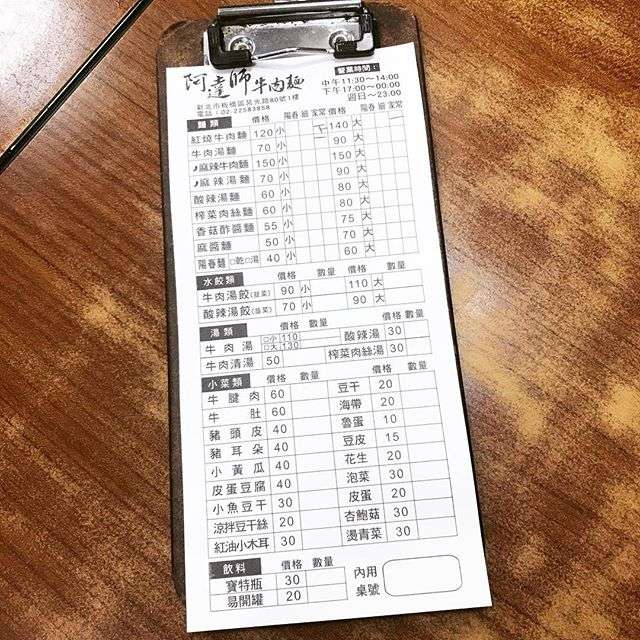 阿達師牛肉麵
營業時間：
中午11:30～14:00
下午17:00～00:00
週日～23:00
新北市板橋區莒光路80號1樓
電話：02-22583858
麵類 價格 陽春 細 家常 價格 陽春 細 家常
紅燒牛肉麵 120 小 140 大
牛肉湯麵 70 小 90 大
麻辣牛肉麵 150 小 150 大
麻辣湯麵 70 小 90 大
酸辣湯麵 60 小 80 大
榨菜肉絲麵 60 小 80 大
香菇酢醬麵 55 小 75 大
麻醬麵 50 小 70 大
陽春麵 □乾□湯 40 小 60 大
水餃類 價格 數量 價格 數量
牛肉湯餃(韮菜) 90 小 110 大
酸辣湯餃(韮菜) 70 小 90 大
湯類 價格 數量 價格 數量
牛肉湯 □小 110 □大 130 酸辣湯 30
牛肉清湯 50 榨菜肉絲湯 30
小菜類 價格 數量 價格 數量
牛腱肉 60 豆干 20
牛肚 60 海帶 20
豬頭皮 40 魯蛋 10
豬耳朵 40 豆皮 15
小黃瓜 40 花生 20
皮蛋豆腐 40 泡菜 30
小魚豆干 30 皮蛋 20
涼拌豆干絲 20 杏鮑菇 30
紅油小木耳 30 燙青菜 30
飲料 價格 數量
寶特瓶 30
易開罐 20
內用
桌號